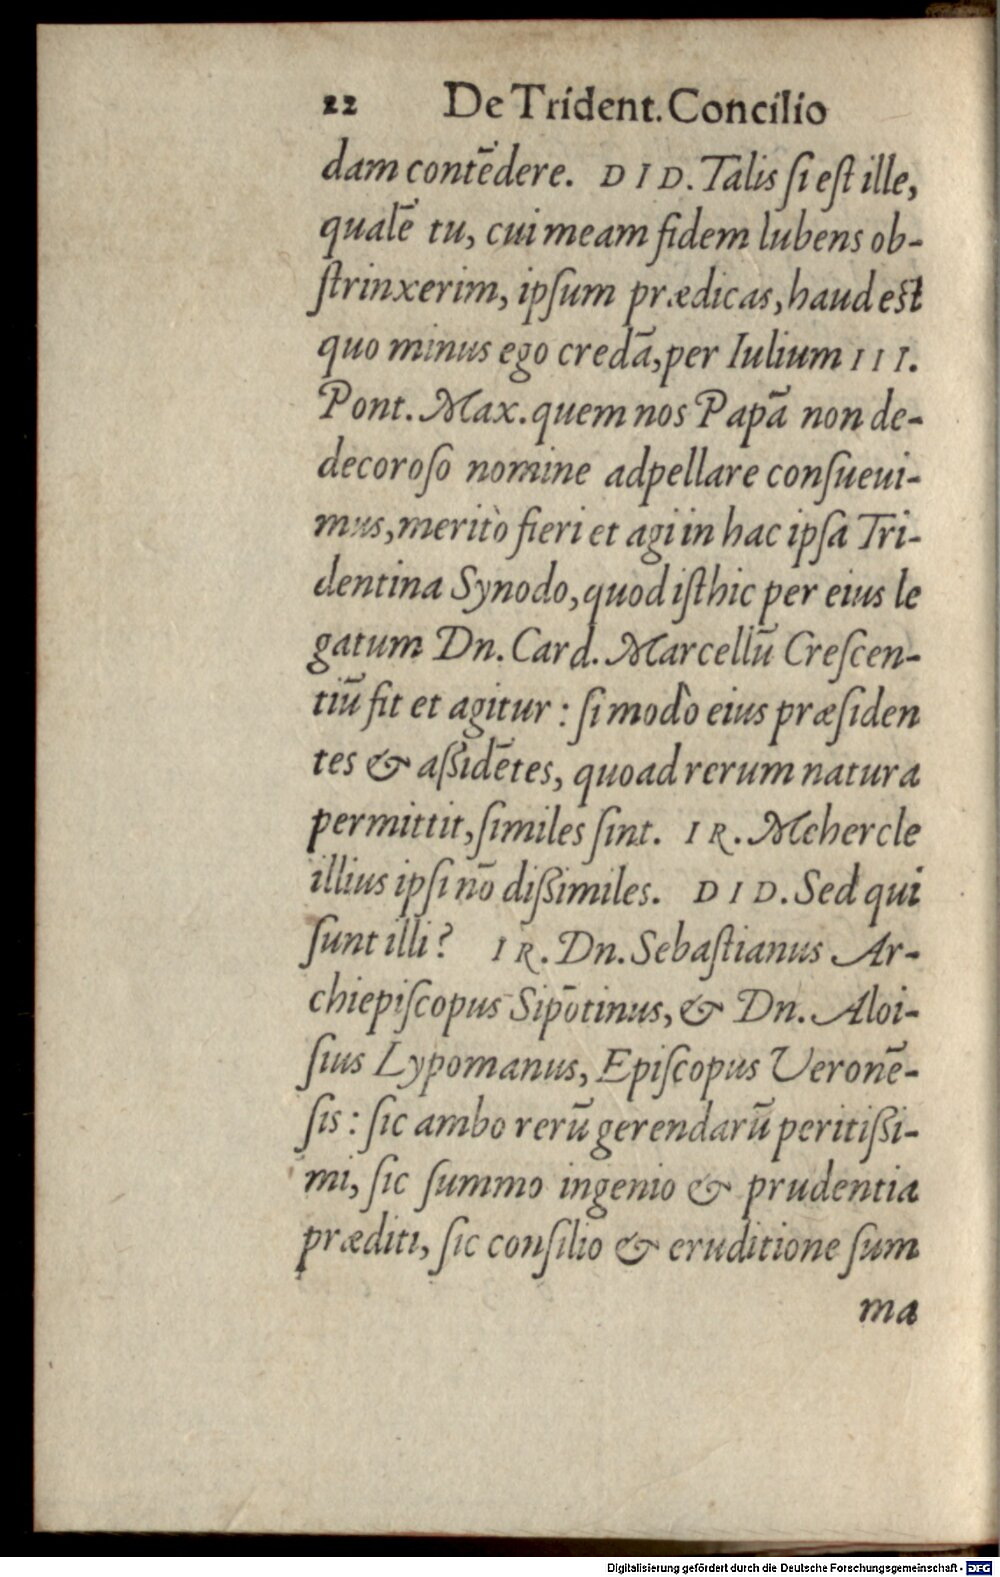 22 De Trident. Concilio
dam contēdere. DID. Talis ſi eſt ille,
qualē tu, cui meam fidem lubens ob-
ſtrinxerim, ipſum prædicas, haud eſt
quo minus ego credā, per Iulium III.
Pont. Max. quem nos Papā non de-
decoroſo nomine adpellare conſueui-
mus, meritò fieri et agi in hac ipſa Tri-
dentina Synodo, quod iſthic per eius le
gatum Dn. Card. Marcellū Creſcen-
tiū fit et agitur : ſi modò eius præſiden
tes & aſſidētes, quoad rerum natura
permittit, ſimiles ſint. IR. Mehercle
illius ipſi nō diſſimiles. DID. Sed qui
ſunt illi? IR. Dn. Sebaſtianus Ar-
chiepiſcopus Sipōtinus, & Dn. Aloi-
ſius Lypomanus, Epiſcopus Veronē-
ſis : ſic ambo rerū gerendarū peritiſſi-
mi, ſic ſummo ingenio & prudentia
præditi, ſic conſilio & eruditione ſum
ma
Digitalisierung gefördert durch die Deutsche Forschungsgemeinschaft - DFG